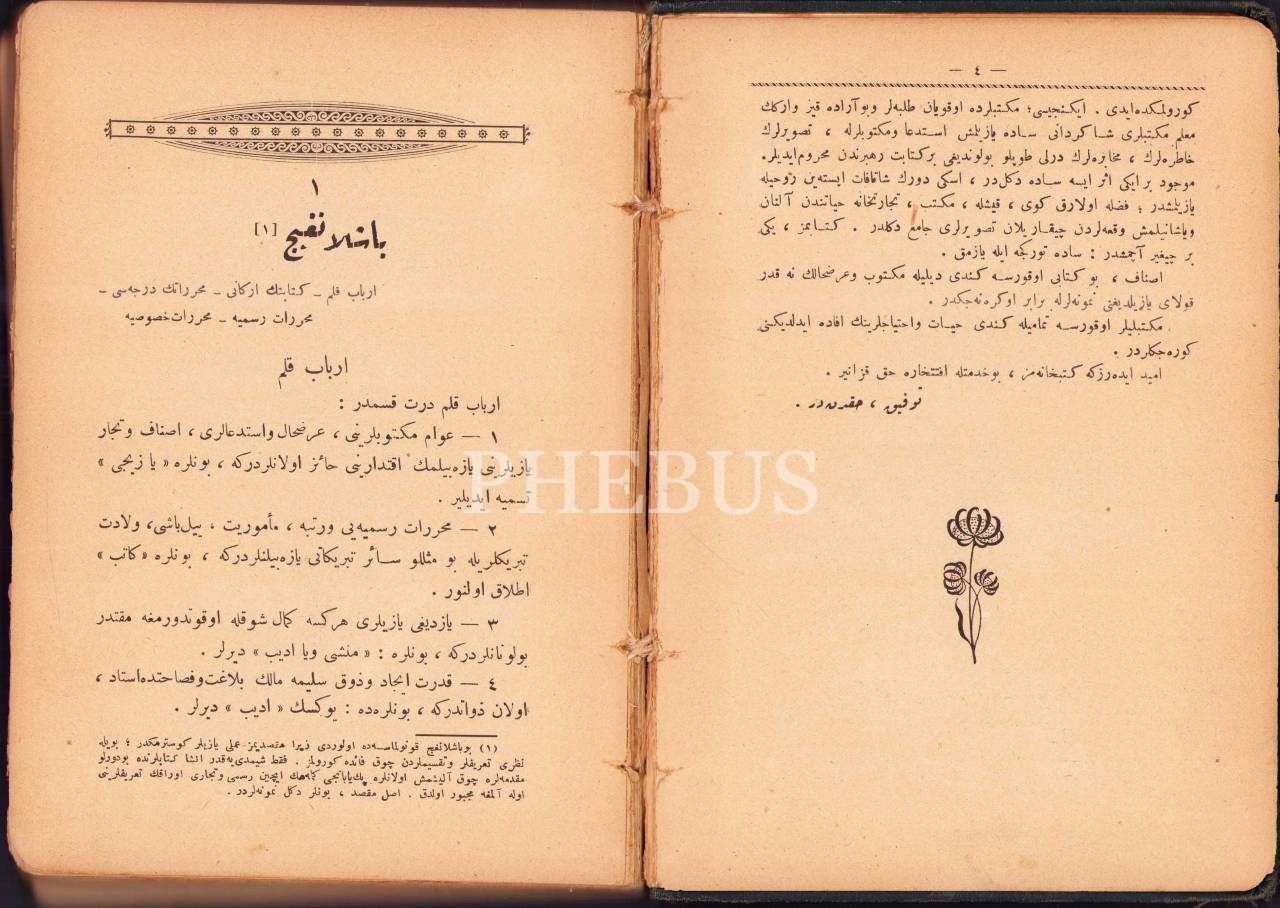 — ٤ —
كورولمكده‌ايدى . ايكنجيسى؛ مكتبلرده اوقويان طلبه‌لر وبوآراده قيز واركك
معلم مكتبلرى شاكردانى ساده يازيلمش استدعا ومكتوبلرله ، تصويرلرك
خاطره‌لرك ، مخابره‌لرك درلى طوپلو بولونديغى بركتابت رهبرندن محروم‌ايديلر.
موجود برايكى اثر ايسه ساده دكل‌در ، اسكى دورك شاتافات ايسته‌ين روحيله
يازيلمشدر ؛ فضله اولارق كوى ، قيشله ، مكتب ، تجارتخانه حياتندن آلنان
وياشانيلمش وقعه‌لردن چيقاريلان تصويرلرى جامع دكلدر . كتابمز ، يكى
بر چيغير آچمشدر : ساده توركجه ايله يازمق .
اصناف ، بو كتابى اوقورسه كندى ديليله مكتوب وعرضحالك نه قدر
قولاى يازيلديغنى نمونه‌لرله برابر اوكره‌نه‌جكدر .
مكتبليلر اوقورسه تماميله كندى حيات واحتياجلرينك افاده ايدلديكنى
كوره‌جكلردر .
اميد ايده‌رزكه كتبخانه‌مز ، بوخدمتله افتخاره حق قزانير .
توفيق ، حقدن‌در .
١
باشلانغيج [١]
ارباب قلم – كتابتك اركانى – محرراتك درجه‌سى –
محررات رسميه – محررات‌خصوصيه
ارباب قلم
ارباب قلم درت قسمدر :
١ — عوام مكتوبلرينى ، عرضحال واستدعالرى ، اصناف وتجار
يازيلرينى يازه‌بيلمك اقتدارينى حائز اولانلردركه ، بونلره « يازيجى »
تسميه ايديلير .
٢ — محررات رسميه‌يى ورتبه ، مأموريت ، ييل‌باشى، ولادت
تبريكلريله بو مثللو سائر تبريكاتى يازه‌بيلنلردركه ، بونلره «كاتب»
اطلاق اولنور .
٣ — يازديغى يازيلرى هركسه كمال شوقله اوقوندورمغه مقتدر
بولونانلردركه ، بونلره : « منشى ويا اديب » ديرلر .
٤ — قدرت ايجاد وذوق سليمه مالك بلاغت‌وفصاحتده‌استاد ،
اولان ذواتدركه ، بونلره‌ده : يوكسك « اديب » ديرلر .
(١) بوباشلانغيج قونولماسه‌ده اولوردى زيرا مقصديمز عملى يازيلر كوسترمكدر ؛ بويله
نظرى تعريفلر وتقسيملردن چوق فائده كورولمز . فقط شيمدى‌يه‌قدر انشا كتابلرنده بودورلو
مقدمه‌لره چوق آليشمش اولانلره پك‌يابانجى كلمه‌مك ايچين رسمى وتجارى اوراقك تعريفلرينى
اوله آلمغه مجبور اولدق . اصل مقصد ، بونلر دكل نمونه‌لردر .
PHEBUS